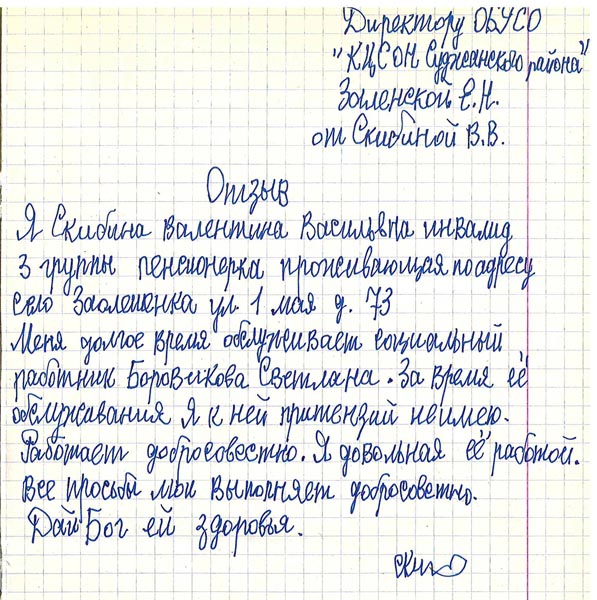 Директору ОБУСО
"КЦСОН Суджанского района"
Заленской Е.Н.
от Скибиной В.В.
Отзыв
Я Скибина Валентина Васильвна инвалид
3 группы пенсионерка проживающая по адресу
село Заолешенка ул 1 мая д. 73
Меня долгое время обслуживает социальный
работник Боровикова Светлана. За время её
обслуживания Я к ней притензий неимею.
Работает добросовестно. Я довольная её работой.
Все просьбы мои выполняет добросовестно.
Дай Бог ей здоровья.